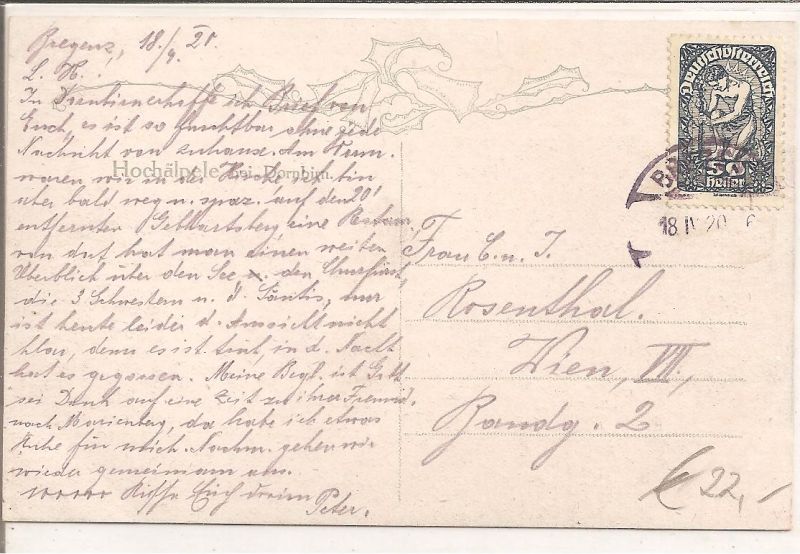 Bregenz, 18./4. 20.
L. H.!
In hoffe ich Brief von
Euch, es ist so furchtbar ohne jede
Nachricht von zuhause. Am Vorm.
waren wir in der Kirche, ich bin
aber bald weg u. spaz. auf den 20'
entfernten Gebhartsberg eine
von dort hat man einen weiten
Überblick über den See u. den Churfirst.,
die 3 Schwestern u. d. Säntis, nur
ist heute leider d. Aussicht nicht
klar, denn es ist trüb, in d. Nacht
hat es gegossen. Meine Begl. ist Gott
sei Dank auf eine Zeit zu ihrer Freund.
nach Marienberg, da habe ich etwas
Ruhe für mich. Nachm. gehen wir
wieder gemeinsam
Küsse Euch
Peter.
Hochälpele bei Dornbirn.
Deutschösterreich
50
Heller
18 IV 20 6
Frau C. u. I.
Rosenthal.
Wien, VII,
Bandg. 2
€ 22,-